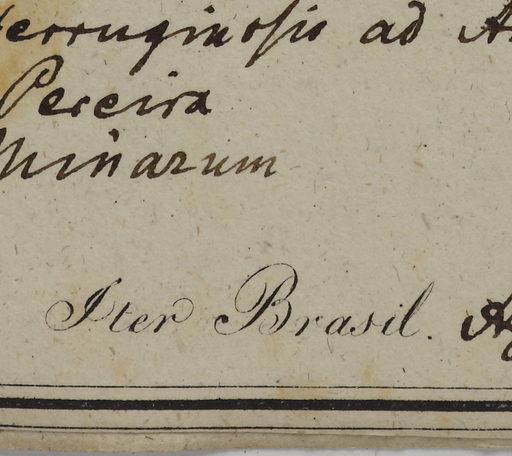 ferruginosis ad
Pereira
Minarum
Iter Brasil.